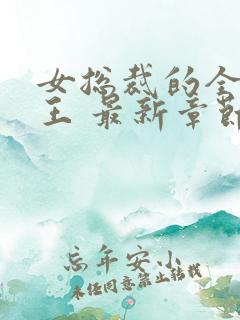 女总裁的全
王 最新章节
忘年安小
未经同意禁止转载